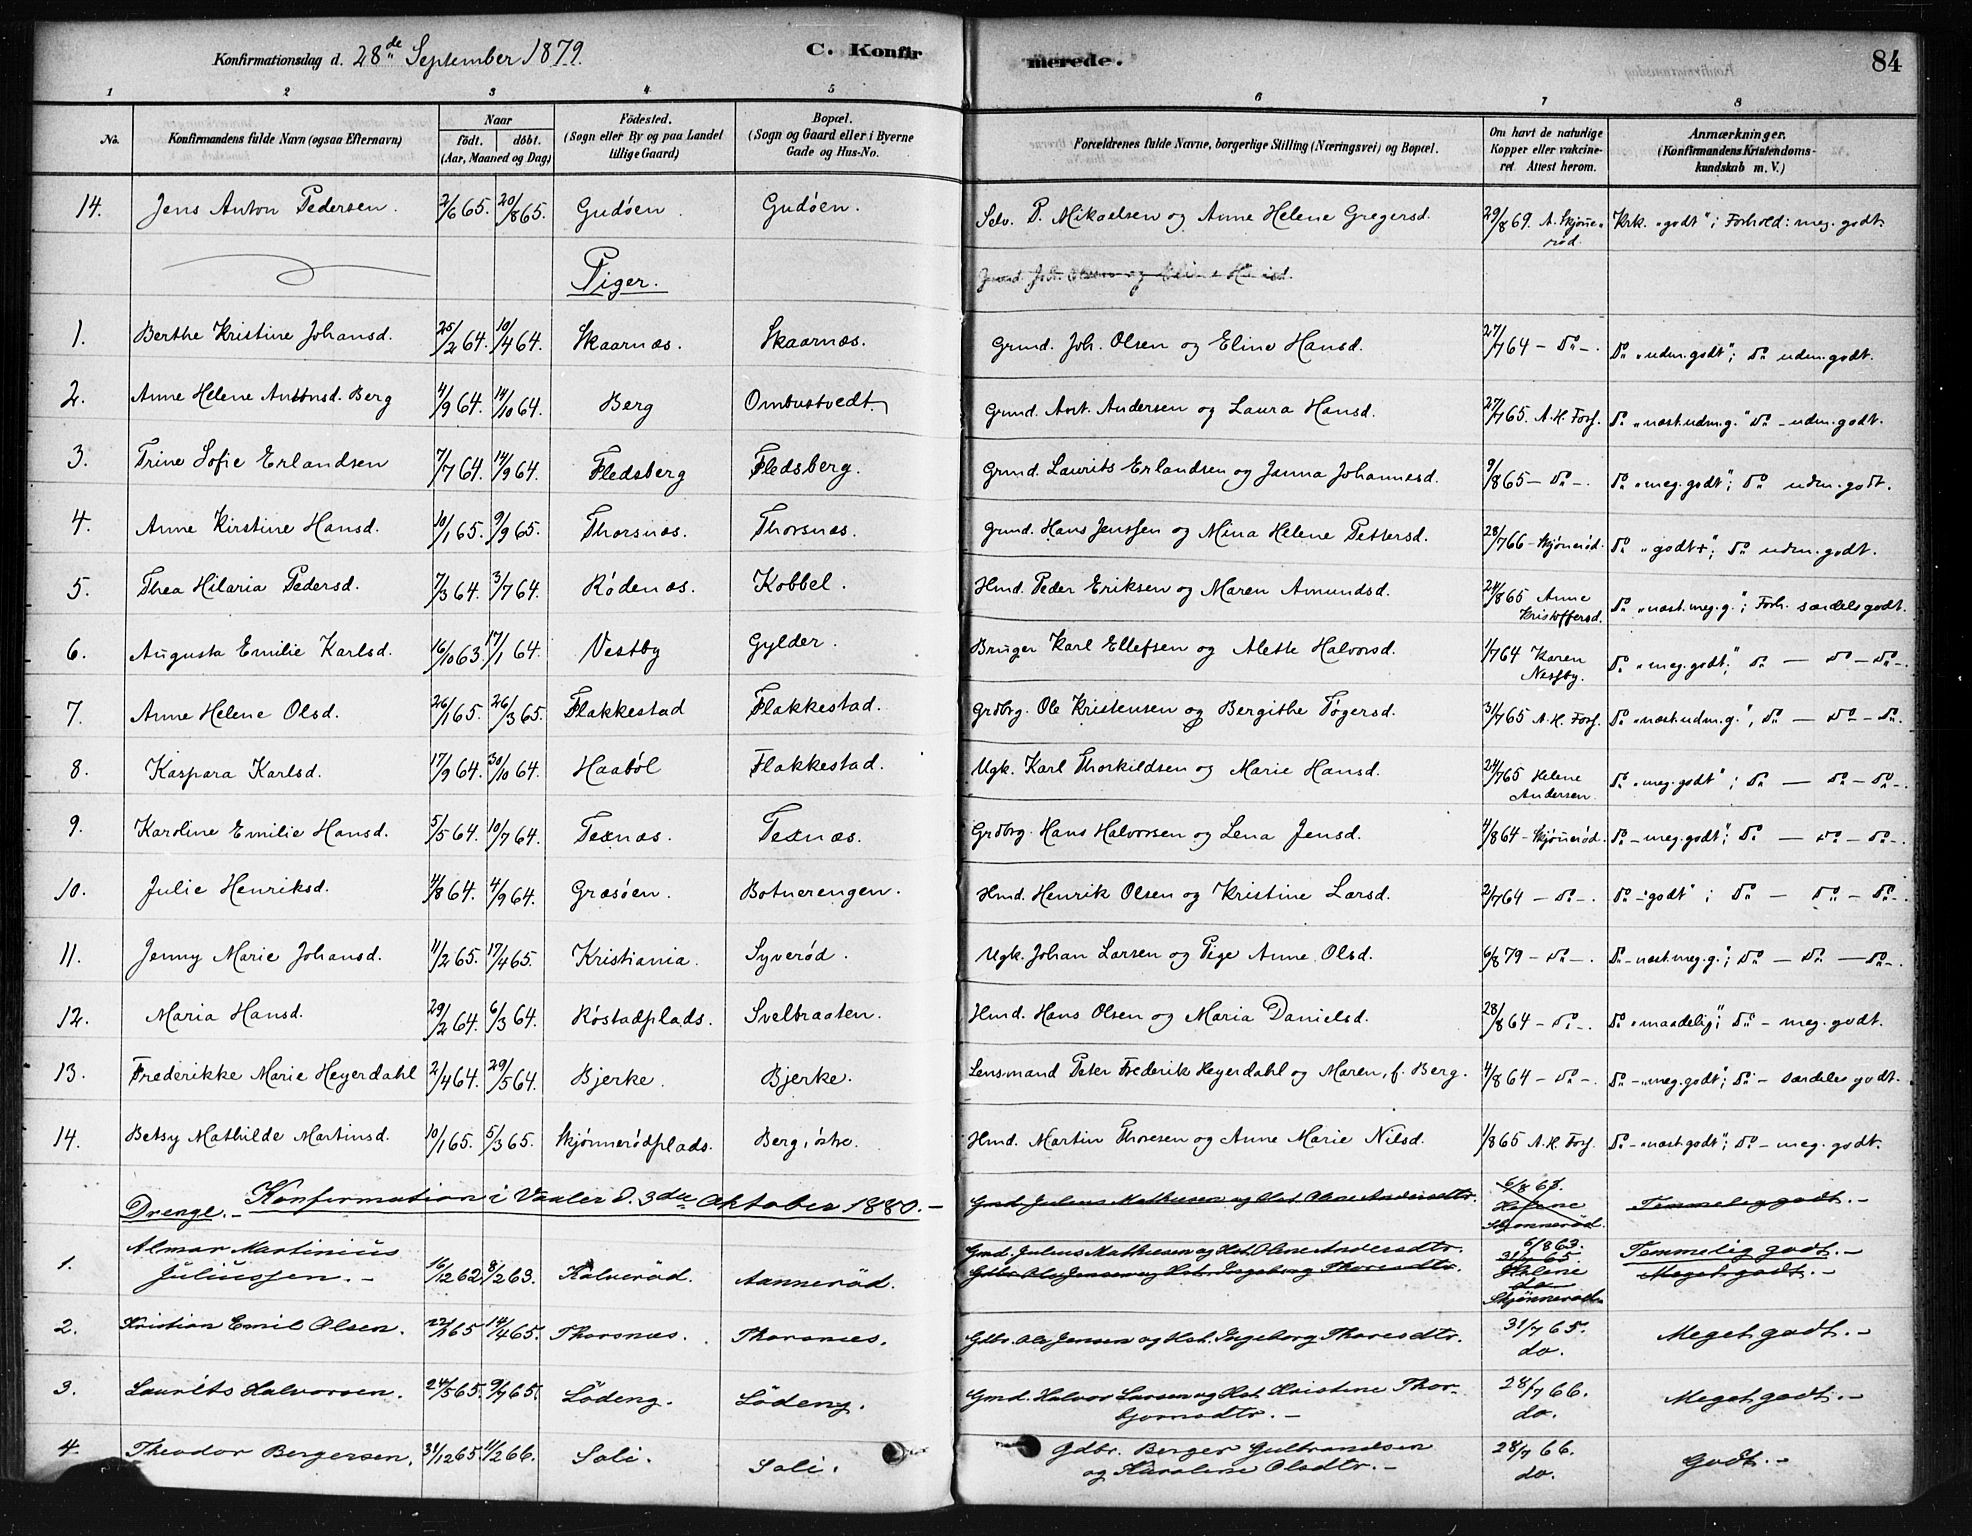 Konfirmationsdag d. 28de September 1879. C. Konfirmerede. 84
1 2 3 4 5 6 7 8
No. Konfirmandens fulde Navn (ogsaa Efternavn) Naar födt. döbt. (Aar, Maaned og Dag) Födested. (Sogn eller By og paa Landet tillige Gaard) Bopæl. (Sogn og Gaard eller i Byerne Gade og Hus-No. Forældrenes fulde Navne, borgerlige Stilling (Næringsvei) og Bopæl. Om havt de naturlige Kopper eller vakcineret. Attest herom. Anmærkninger. (Konfirmandens Kristendomskundskab m. V.)
14. Jens Anton Pedersen. 2/6 65. 20/8 65. Gudöen. Gudöen. Selv. P. Mikaelsen og Anne Helene Gregersd. 29/8 69. A. Skjønerød. Krk. "godt"; Forhold: meg. godt.
Piger.
1. Berthe Kristine Johansd. 25/2 64. 10/4 64. Skaarnæs. Skaarnæs. Grmd. Joh. Olsen og Eline Hansd. 27/7 64 – do –. do "udm. godt"; do udm. godt.
2. Anne Helene Antonsd. Berg 4/9 64. 14/10 64. Berg Ombustvedt. Grmd. Ant. Andersen og Laura Hansd. 27/7 65. A. H. Forf. do "næst. udm. g." do – udm. godt.
3. Trine Sofie Erlandsen 7/7 64. 14/9 64. Fledsberg Fledsberg. Grmd. Laurits Erlandsen og Janna Johannesd. 9/8 65 – do –. do "meg. godt"; do udm. godt.
4. Anne Kirstine Hansd. 10/1 65. 9/9 65. Thorsnæs. Thorsnæs. Grmd. Hans Jenssen og Mina Helene Pettersd. 28/7 66 – Skjønerød. do "godt+"; do udm. godt.
5. Thea Hilaria Pedersd. 7/3 64. 3/7 64. Rödenæs. Kobbel. Hmd. Peder Eriksen og Maren Amundsd. 24/8 65 Anne Kristoffersd. do "næst. meg. g."; Forh. særdeles godt.
6. Augusta Emilie Karlsd. 16/10 63. 17/1 64. Vestby Gylder. Bruger Karl Ellefsen og Alette Halvorsd. 1/7 64 Karen Næsby. do "meg. godt"; do – do – do –.
7. Anne Helene Olsd. 26/1 65. 26/3 65. Flakkestad Flakkestad. Grdbrg. Ole Kristensen og Bergithe Tøgersd. 31/7 65 A. H. Forf. do "næst. udm. g."; do – do – do.
8. Kaspara Karlsd. 17/9 64. 30/10 64. Haaböl Flakkestad. Ugk. Karl Thorkildsen og Marie Hansd. 24/7 65 Helene Andersen. do "meg. godt"; do – do – do –.
9. Karoline Emilie Hansd. 5/5 64. 10/7 64. Texnæs. Texnæs. Grdbrg. Hans Halvorsen og Lena Jensd. 4/8 64 – Skjønerød. do – meg. godt"; do – do – do –.
10. Julie Henriksd. 4/8 64. 4/9 64. Græsöen. Botnerengen. Hmd. Henrik Olsen og Kristine Larsd. 2/7 64 – do –. do – "godt"; do – do – do –.
11. Jenny Marie Johansd. 11/2 65. 17/4 65. Kristiania. Syveröd. Ugk. Johan Larsen og Pige Anne Olsd. 6/8 79 – do –. do – næst. meg. g."; do – do – do –.
12. Maria Hansd. 29/2 64. 6/3 64. Röstadplads. Svelbraaten. Hmd. Hans Olsen og Maria Danielsd. 28/8 64 – do –. do "maadelig"; do – meg. godt.
13. Frederikke Marie Heyerdahl 2/4 64. 29/5 64. Bjerke. Bjerke. Lensmand Peter Frederik Heyerdahl og Maren, f. Berg. 4/8 64 – do –. do – "meg. godt"; do – særdeles godt.
14. Betsy Mathilde Martinsd. 10/1 65. 5/3 65. Skjønnerødplads. Berg, östre. Hmd. Martin Thoresen og Anne Marie Nilsd. 1/8 65 A. H. Forf. do – "næst. godt"; do – meg. godt.
Drenge. – Konfirmation i Vaaler d. 3die Oktober 1880. – Gmd. Julius Mathisen og Hst. Oline Andersdtr. 6/8 63. Helene Skjønnerød. Temmelig godt. –
1. Almar Martinius Juliussen. – 16/12 62 8/2 63. Kalveröd. Aanneröd. Gmd. Julius Mathisen og Hst. Oline Andersdtr. 6/8 63. Helene Skjønnerød. Temmelig godt. –
Gdbr. Ole Jensen og Hst. Ingeborg Thoresdtr. 31/7 65 do Meget godt. –
2. Kristian Emil Olsen. 22/2 65 14/4 65. Thorsnæs. Thorsnæs. Gdbr. Ole Jensen og Hst. Ingeborg Thoresdtr. 31/7 65. do. Meget godt. –
3. Laurits Halvorsen. 24/5 65. 9/7 65. Lödeng. Lödeng. Gmd. Halvor Larsen og Hst. Kristine Thorbjornsdtr. – 28/7 66. do. Meget godt. –
4. Theodor Bergersen. 31/12 65 11/2 66. Soli. Soli. Gdbr. Berger Gulbrandsen og Karolene Olsdtr. – 28/7 66. do. Godt. –